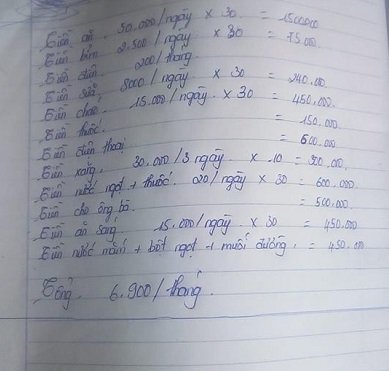 Tiền ăn. 50.000/ngày × 30 = 1500.000
Tiền bỉm 2.500/ngày × 30 = 75.000
Tiền điện 200/tháng.
Tiền sữa, 8000/ngày × 30 = 240.000
Tiền cháo, 15.000/ngày × 30 = 450.000
Tiền thuốc. = 150.000
Tiền điện thoại = 600.000
Tiền xăng, 30.000/3 ngày × 10 = 300.000
Tiền nước ngọt + thuốc. 20/ngày × 30 = 600.000
Tiền cho ông bà. = 500.000
Tiền ăn sáng 15.000/ngày × 30 = 450.000
Tiền nước mắm + bột ngọt + muối đường, = 450.000
Tổng. 6.900/tháng.